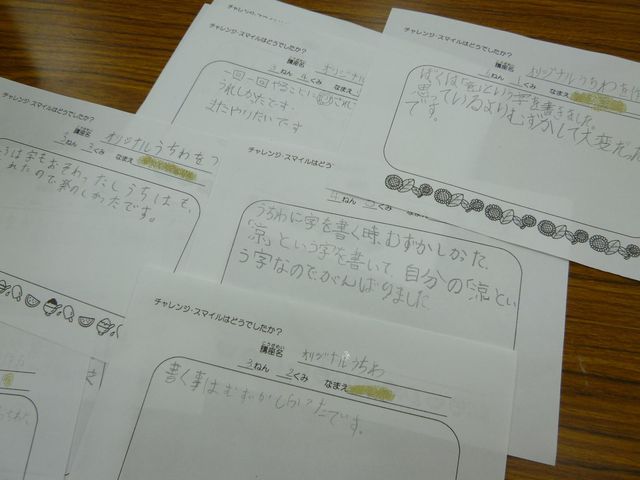 チャレンジ・スマイルはどうでしたか?
講座名 オリジナル
ねん くみ なまえ
一回一回やることに
うれしかたです。
またやりたいです
チャレンジ・スマイルはどうでしたか?
講座名 オリジナルうちわを作
ねん くみ なまえ
ぼくは という字を書きました。
思っているよりむずかしくて大変だった
です。
チャレンジ・スマイルはどうでしたか?
講座名 オリジナルうちわをつ
ねん くみ なまえ
は字をおそわったしうちはも、
れたので楽のしかったです。
チャレンジ・スマイルはどう
ねん くみ なま
うちわに字を書く時、むずかしかった、
「涼」という字を書いて、自分の「涼」とい
う字なので、がんばりました
チャレンジ・スマイルはどうでしたか?
講座名 オリジナルうちわ
3ねん 2くみ なまえ
書く事はむずかしかったです。